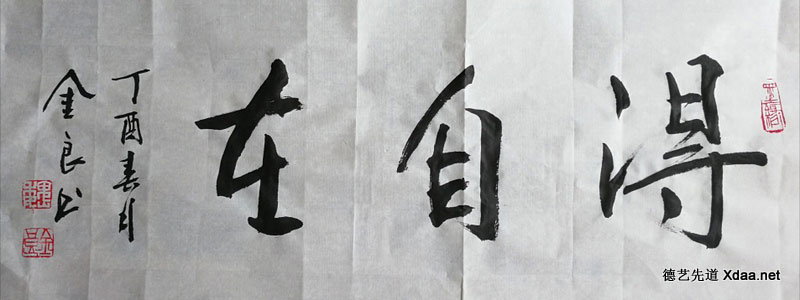 得自在
丁酉春月
金良书
德艺先道 Xdaa.net